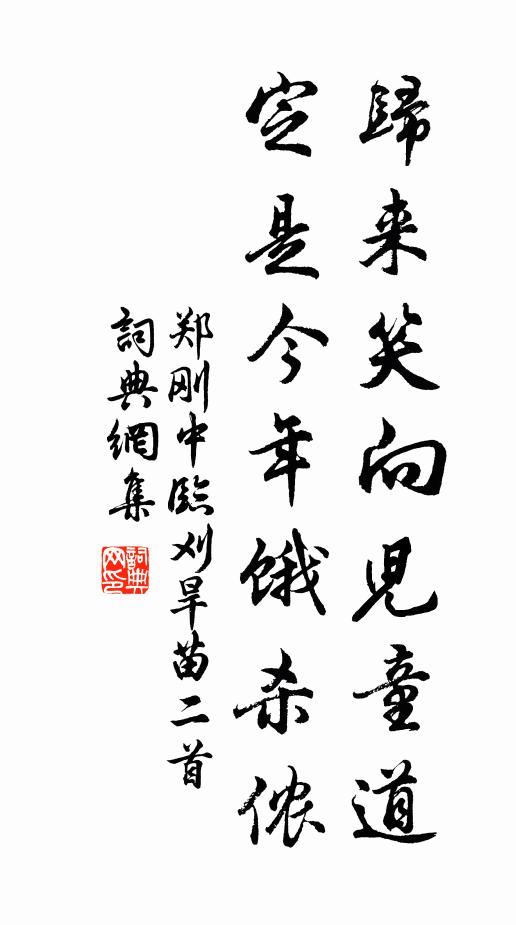 歸来笑向児童道
定是今年饿杀侬
郑刚中臨刈旱苗二首
詞典網集
詞典网印